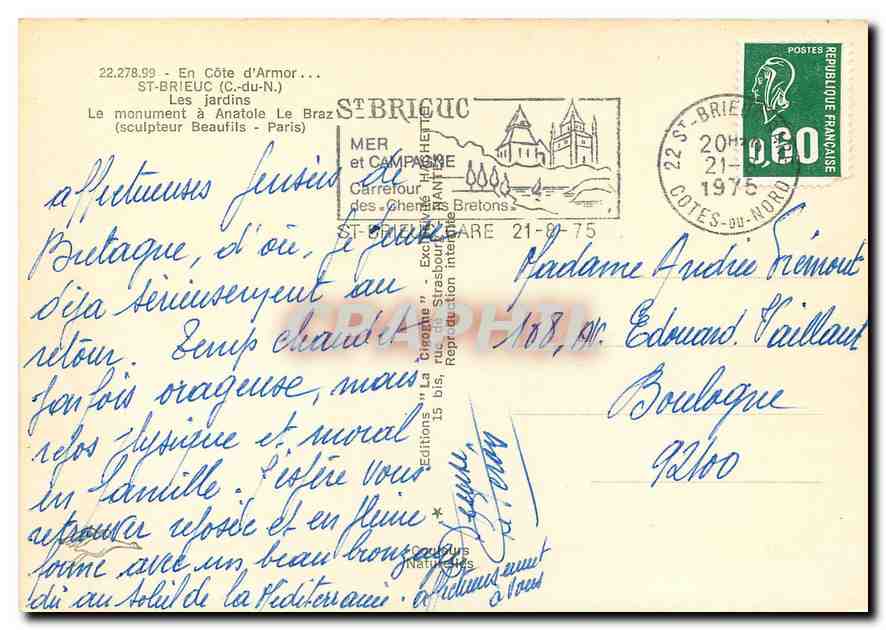 22.278.99 - En Côte d'Armor...
ST-BRIEUC (C.-du-N.)
Les jardins
Le monument à Anatole Le Braz
(sculpteur Beaufils - Paris)
ST BRIEUC
MER
et CAMPAGNE
Carrefour
des "Chemins Bretons"
ST-BRIEUC GARE 21-8-75
22 ST-BRIEUC
20H
21-
1975
COTES-DU-NORD
POSTES
REPUBLIQUE FRANÇAISE
0,60
affectueuses pensées de
Bretagne, d'où, je pense
déjà sérieusement au
retour. Temps chaud et
parfois orageuse, mais
repos physique et moral
en famille. J'espère vous
retrouver reposée et en pleine
forme avec un beau bronzage
dû au soleil de la Méditerranée.
affectueusement
à vous
Editions "La Cigogne" - Exclusivité HACHETTE
15 bis, rue de Strasbourg - NANTES
Reproduction interdite
Couleurs
Naturelles
Madame Andrée Frémont
188, Av. Edouard Vaillant
Boulogne
92100
CRAPHIL